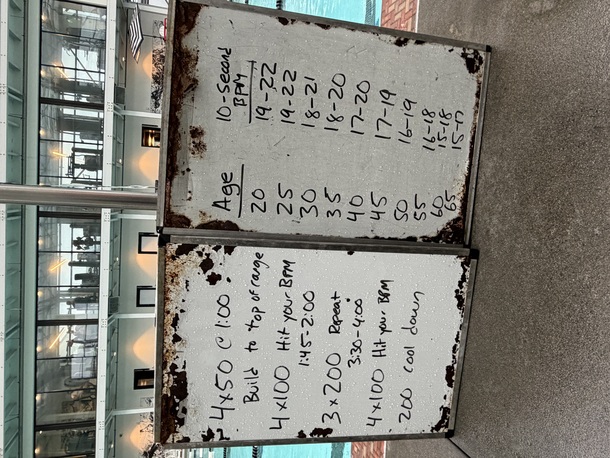 4x50 @ 1:00
Build to top of range
4x100 Hit your BPM
1:45-2:00
3x200 Repeat
3:30-4:00
4x100 Hit your BPM
200 cool down
Age 10-second BPM
20 19-22
25 19-22
30 18-21
35 18-20
40 17-20
45 17-19
50 16-19
55 16-18
60 15-18
65 15-17